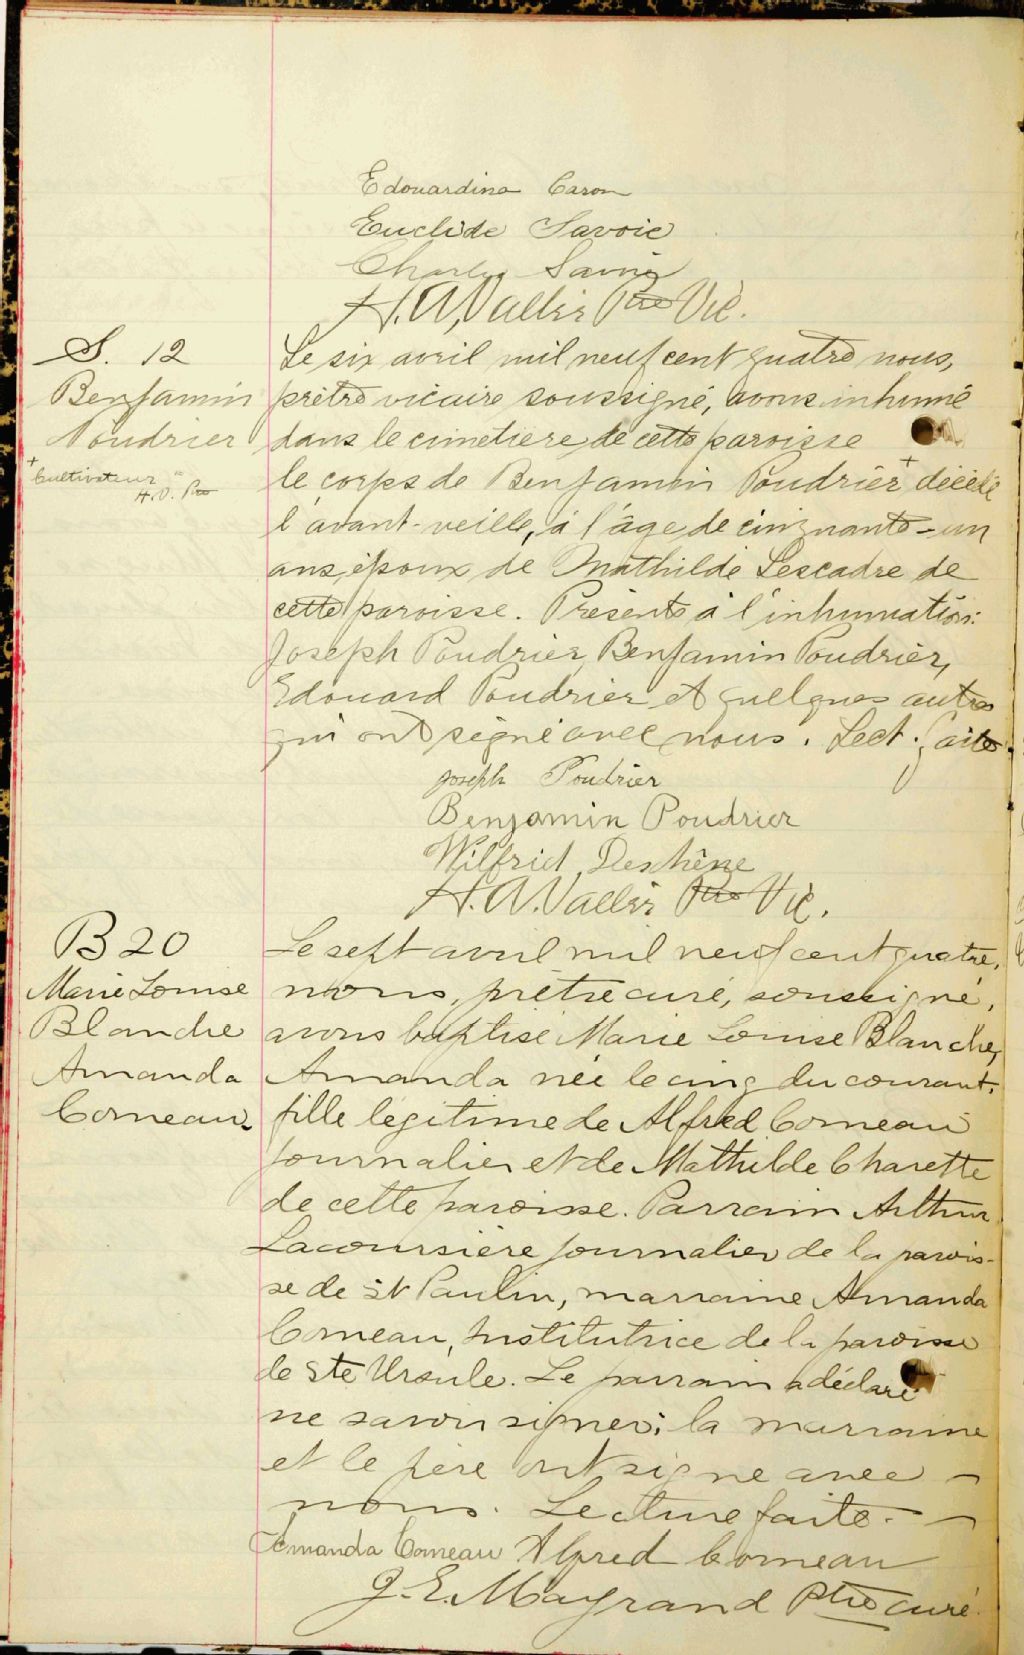 Edouardina Caron
Euclide Savoie
H. A. Vallée Ptre Vic.
S. 12
Benjamin
Poudrier
+ Cultivateur
H. V. Ptre
Le six avril mil neuf cent quatre nous,
prêtre vicaire soussigné, avons inhumé
dans le cimetière de cette paroisse
le corps de Benjamin Poudrier + décédé
l'avant-veille, à l'âge de cinquante-un
ans, époux de Mathilde Lescadre de
cette paroisse. Présents à l'inhumation:
Joseph Poudrier, Benjamin Poudrier,
Edouard Poudrier et quelques autres
qui ont signé avec nous. Lect. faite.
Joseph Poudrier
Benjamin Poudrier
Wilfrid Deschêne
H. A. Vallée Ptre Vic.
B 20
Marie Louise
Blanche
Amanda
Comeau
Le sept avril mil neuf cent quatre,
nous, prêtre curé, soussigné,
avons baptisé Marie Louise Blanche,
Amanda née le cinq du courant,
fille légitime de Alfred Comeau
journalier et de Mathilde Charette
de cette paroisse. Parrain Arthur
Lacoursière journalier de la parois-
se de St Paulin, marraine Amanda
Comeau, institutrice de la paroisse
de Ste Ursule. Le parrain a déclaré
ne savoir signer; la marraine
et le père ont signé avec
nous. Lecture faite.
Amanda Comeau Alfred Comeau
J. E. Mayrand ptre curé.